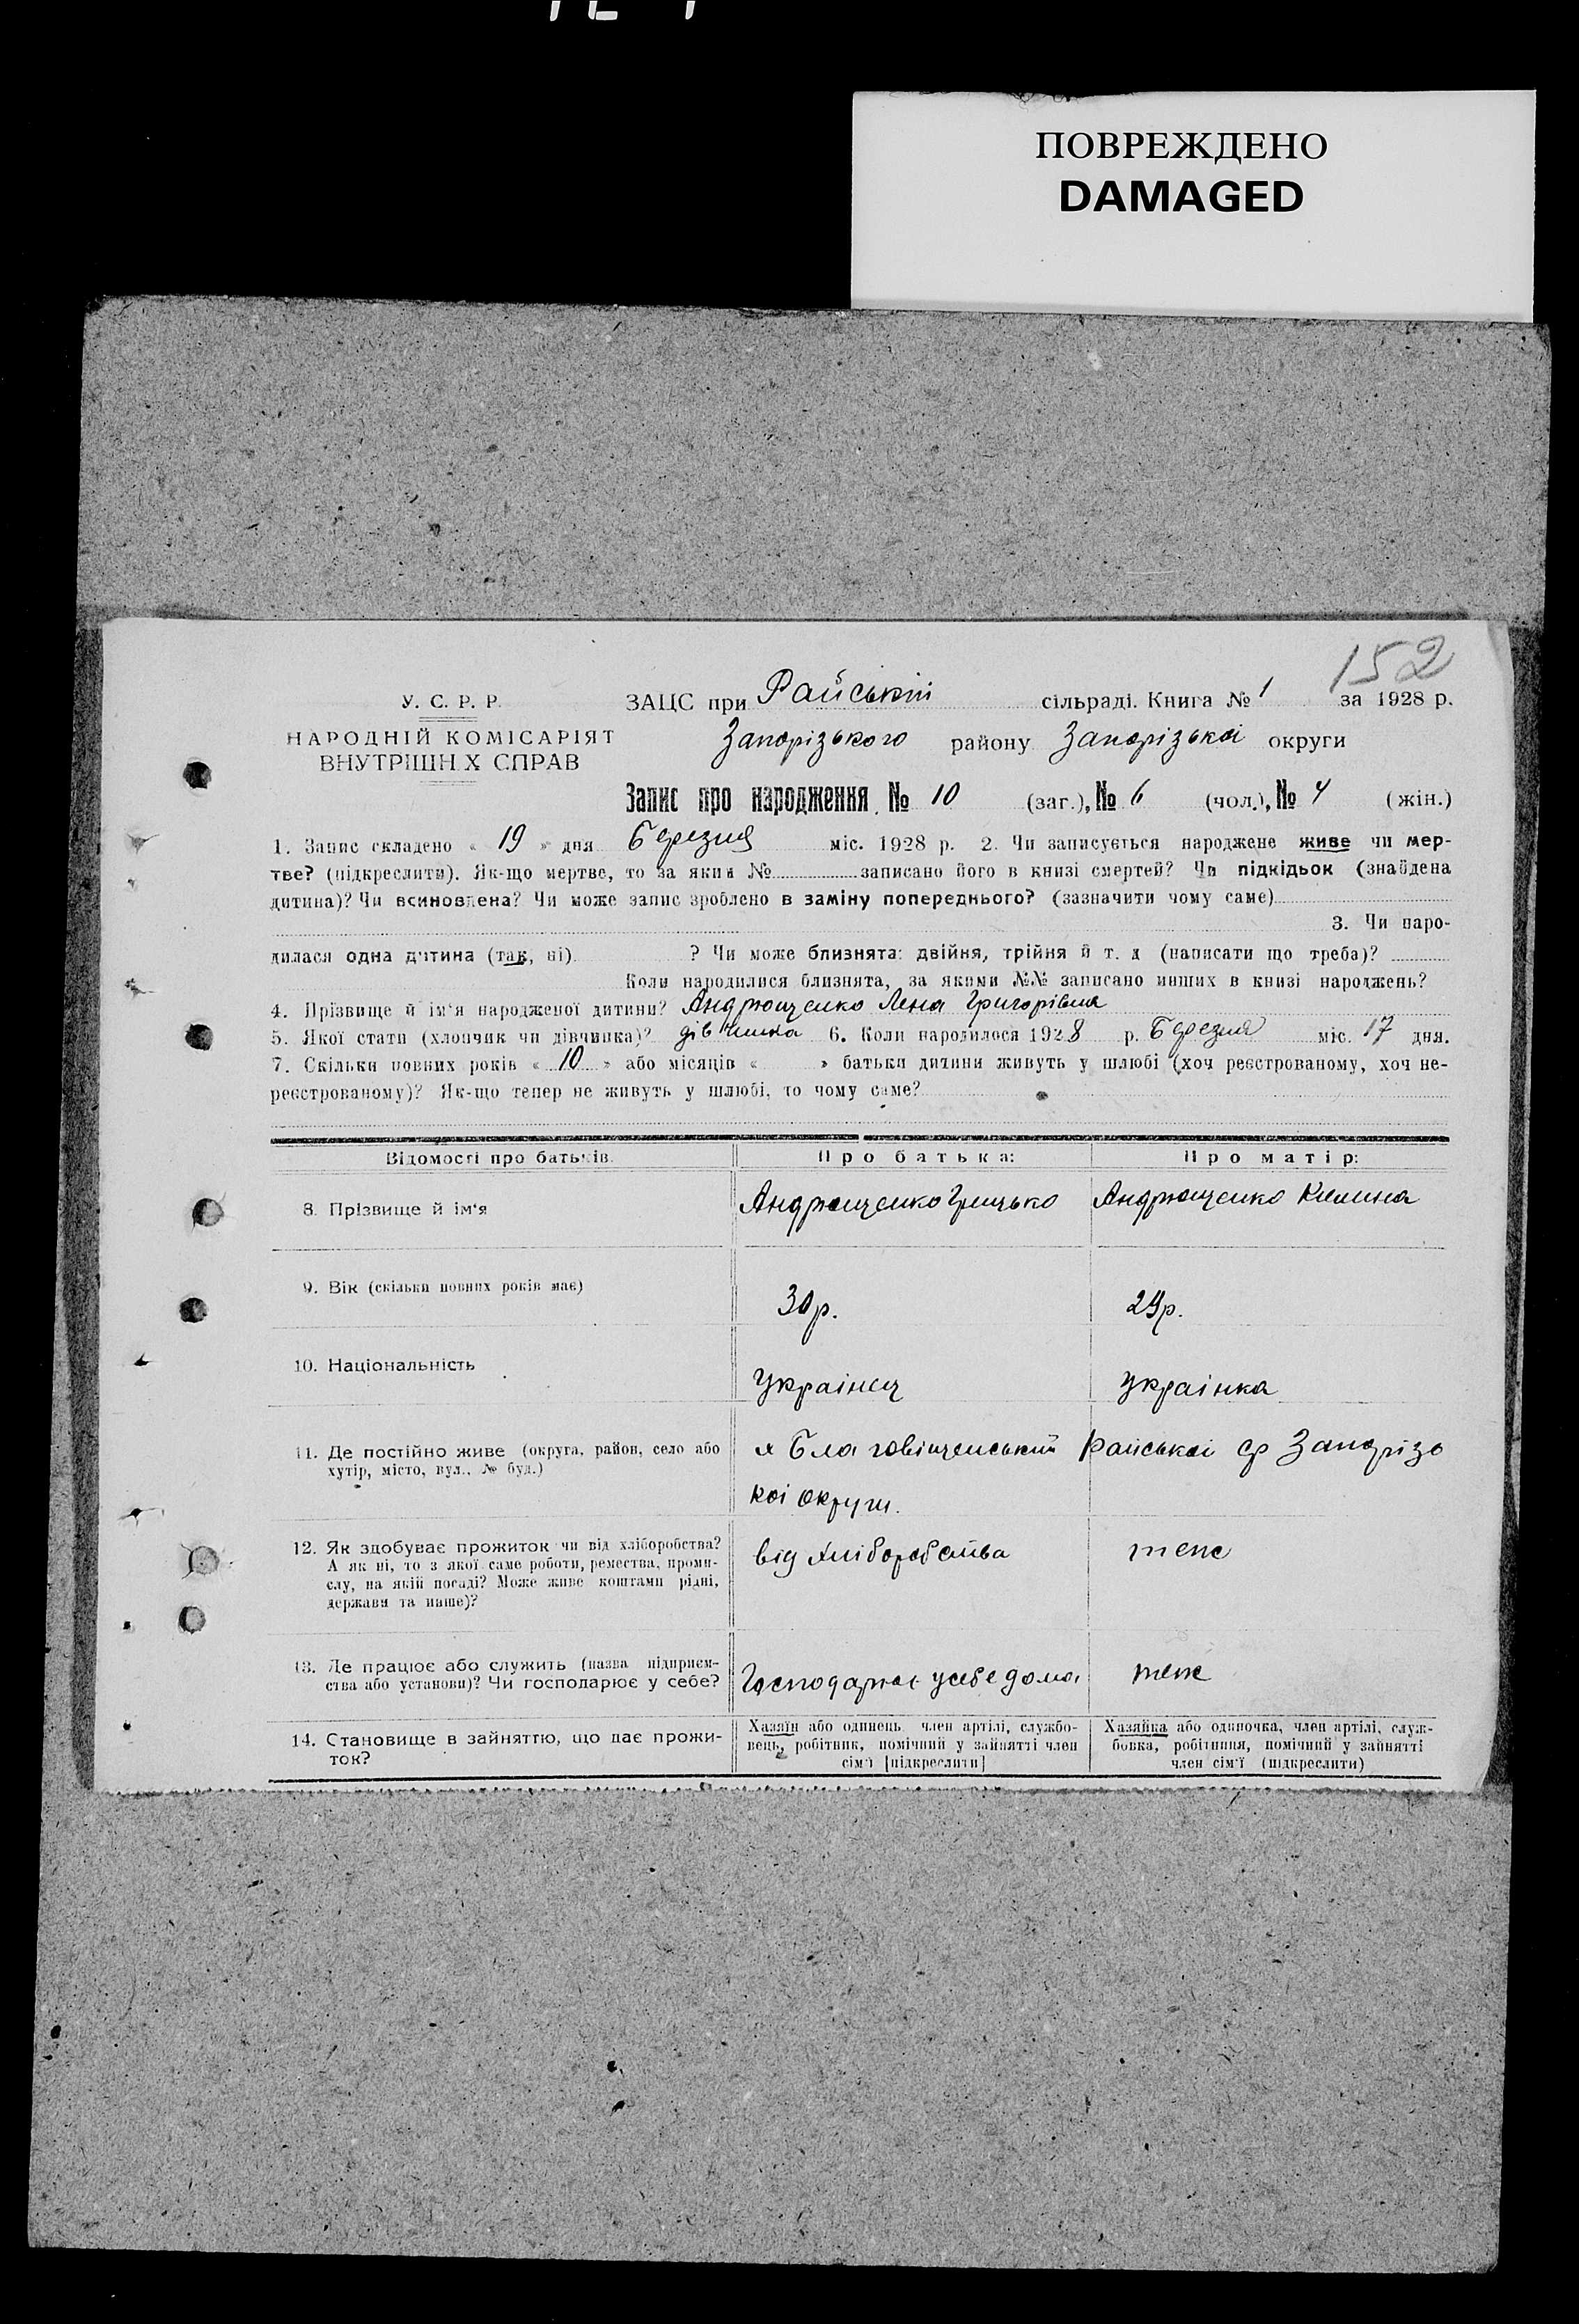 ПОВРЕЖДЕНО
DAMAGED
152
У. С. Р. Р.
НАРОДНІЙ КОМІСАРІЯТ
ВНУТРІШН Х СПРАВ
ЗАЦС при Райській сільраді. Книга № 1 за 1928 р.
Запорізького району Запорізькоі округи
Запис про народження № 10 (заг.), № 6 (чол.), № 4 (жін.)
1. Запис складено « 19 » дня Березня міс. 1928 р. 2. Чи записується народжене живе чи мер-
тве? (підкреслити). Як-що мертве, то за яким № записано його в книзі смертей? Чи підкідьок (знайдена
дитина)? Чи всиновлена? Чи може запис зроблено в заміну попереднього? (зазначити чому саме)
3. Чи наро-
дилася одна дитина (так, ні) ? Чи може близнята: двійня, трійня й т. д (написати що треба)?
Коли народилися близнята, за якими №№ записано инших в книзі народжень?
4. Прізвище й ім'я народженої дитини? Андрющенко Лена Григорівна
5. Якої стати (хлопчик чи дівчинка)? дівчинка 6. Коли народилося 1928 р. Березня міс. 17 дня.
7. Скільки повних років « 10 » або місяців « » батьки дитини живуть у шлюбі (хоч реєстрованому, хоч не-
реєстрованому)? Як-що тепер не живуть у шлюбі, то чому саме?
Відомості про батьків. Про батька: Про матір:
8. Прізвище й ім'я Андрющенко Грицько Андрющенко Килина
9. Вік (скільки повних років має) 30р. 29р.
10. Національність Украінец украінка
11. Де постійно живе (округа, район, село або х Благовіщенський Райськоі ср Запорізь
хутір, місто, вул., № буд.) коі округи.
12. Як здобуває прожиток чи від хліборобства? від хліборобства теж
А як ні, то з якої саме роботи, ремества, проми-
слу, на якій посаді? Може живе коштами рідні,
держави та инше)?
13. Де працює або служить (назва підприєм-
ства або установи)? Чи господарює у себе? Господарює у себе дома теж
14. Становище в зайняттю, що дає прожи-
ток?
Хазяїн або одинець член артілі, службо-
вець, робітник, помічний у зайнятті член
сім'ї [підкреслити]
Хазяйка або одиночка, член артілі, служ-
бовка, робітниця, помічний у зайнятті
член сім'ї (підкреслити)